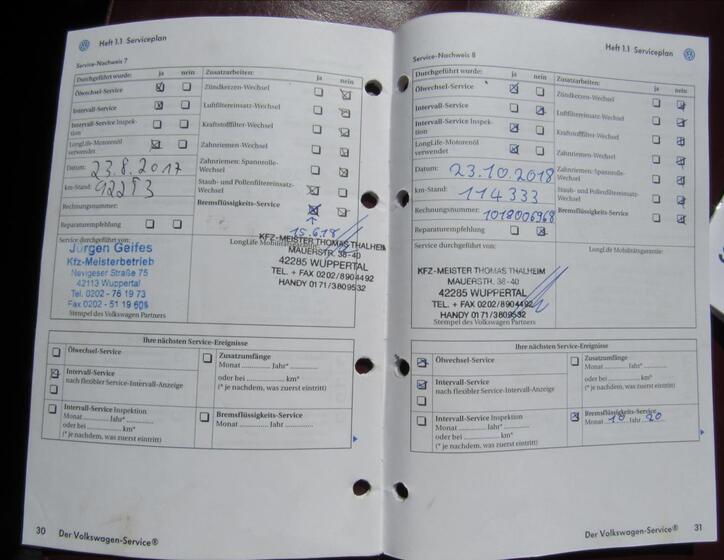 Heft 1.1 Serviceplan
Service-Nachweis 7
Durchgeführt wurde: ja nein
Ölwechsel-Service
Intervall-Service
Intervall-Service Inspek-
tion
LongLife-Motorenöl
verwendet
Datum: 23.8.2017
km-Stand: 92283
Rechnungsnummer:
Reparaturempfehlung
Zusatzarbeiten: ja nein
Zündkerzen-Wechsel
Luftfiltereinsatz-Wechsel
Kraftstofffilter-Wechsel
Zahnriemen-Wechsel
Zahnriemen: Spannrolle-
Wechsel
Staub- und Pollenfiltereinsatz-
Wechsel
Bremsflüssigkeits-Service
15.6.18
Service durchgeführt von:
Jürgen Geifes
Kfz-Meisterbetrieb
Nevigeser Straße 75
42113 Wuppertal
Tel. 0202 - 76 19 73
Fax 0202 - 51 19 605
Stempel des Volkswagen Partners
LongLife Mobilitätsgarantie:
KFZ-MEISTER THOMAS THALHEIM
MAUERSTR. 38-40
42285 WUPPERTAL
TEL. + FAX 0202/8904492
HANDY 0171/3809532
Ihre nächsten Service-Ereignisse
Ölwechsel-Service
Intervall-Service
nach flexibler Service-Intervall-Anzeige
Intervall-Service Inspektion
Monat Jahr*
oder bei km*
(* je nachdem, was zuerst eintritt)
Zusatzumfänge
Monat Jahr*
oder bei km*
(* je nachdem, was zuerst eintritt)
Bremsflüssigkeits-Service
Monat Jahr
30 Der Volkswagen-Service®
Heft 1.1 Serviceplan
Service-Nachweis 8
Durchgeführt wurde: ja nein
Ölwechsel-Service
Intervall-Service
Intervall-Service Inspek-
tion
LongLife-Motorenöl
verwendet
Datum: 23.10.2018
km-Stand: 114333
Rechnungsnummer: 1018006968
Reparaturempfehlung
Zusatzarbeiten: ja nein
Zündkerzen-Wechsel
Luftfiltereinsatz-Wechsel
Kraftstofffilter-Wechsel
Zahnriemen-Wechsel
Zahnriemen: Spannrolle-
Wechsel
Staub- und Pollenfiltereinsatz-
Wechsel
Bremsflüssigkeits-Service
Service durchgeführt von:
KFZ-MEISTER THOMAS THALHEIM
MAUERSTR. 38-40
42285 WUPPERTAL
TEL. + FAX 0202/8904492
HANDY 0171/3809532
Stempel des Volkswagen Partners
LongLife Mobilitätsgarantie:
Ihre nächsten Service-Ereignisse
Ölwechsel-Service
Intervall-Service
nach flexibler Service-Intervall-Anzeige
Intervall-Service Inspektion
Monat Jahr*
oder bei km*
(* je nachdem, was zuerst eintritt)
Zusatzumfänge
Monat Jahr*
oder bei km*
(* je nachdem, was zuerst eintritt)
Bremsflüssigkeits-Service
Monat 10 Jahr 20
Der Volkswagen-Service® 31